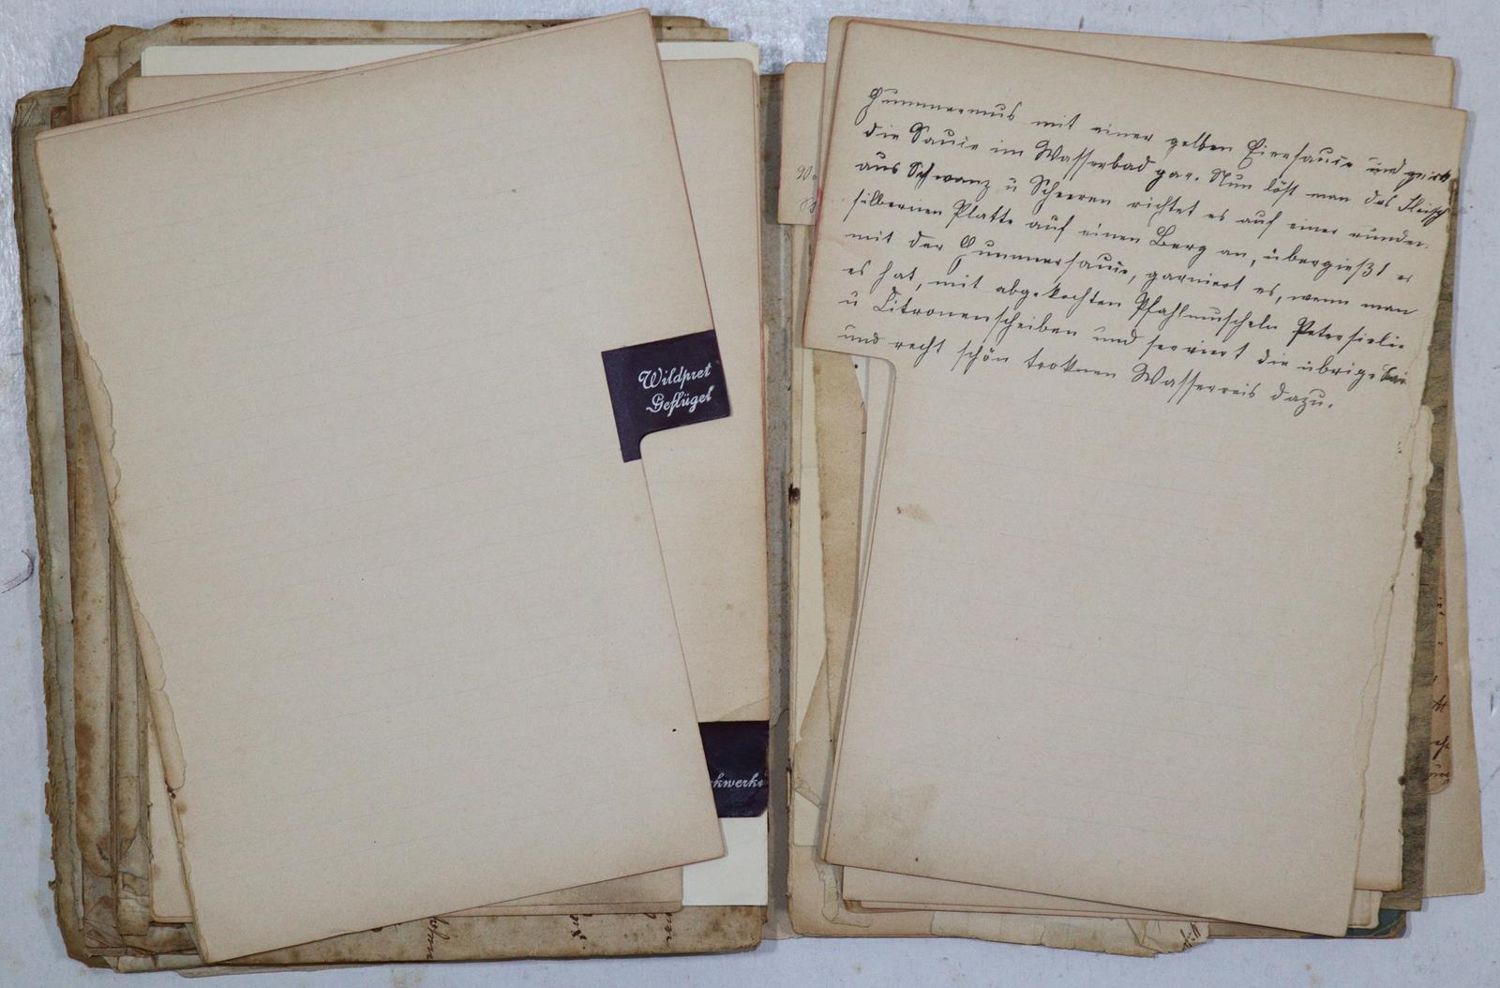 Wildpret
Geflügel
ckwerke
Hummermus mit einer gelben Eiersauce und
die Sauce im Wasserbad gar. Nun löst man das Fleisch
aus Schwanz u Scheeren richtet es auf einer runden
silbernen Platte auf einen Berg an, übergießt es
mit der Hummersauce, garniert es, wenn man
es hat, mit abgekochten Pfahlmuscheln Petersielie
u Citronenscheiben und serviert die übrige
und recht schön troknen Wasserreis dazu.